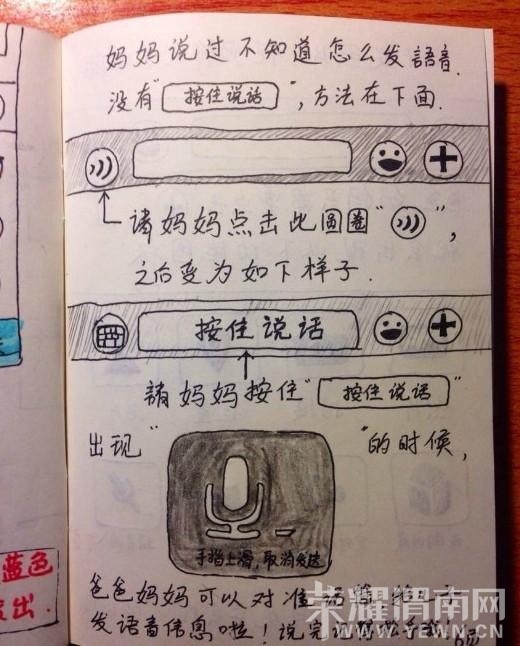 妈妈说过不知道怎么发語音.
没有"按住说话",方法在下面.
请妈妈点击此圆圈" ",
之后变为如下样子.
按住说话
請妈妈按住"按住说话"
出现" "的时候,
手指上滑,取消发送
蓝色
出.
爸爸妈妈可以对准
发语音信息啦!说完记得松手哦!
荣耀渭南网
YEWN.CN